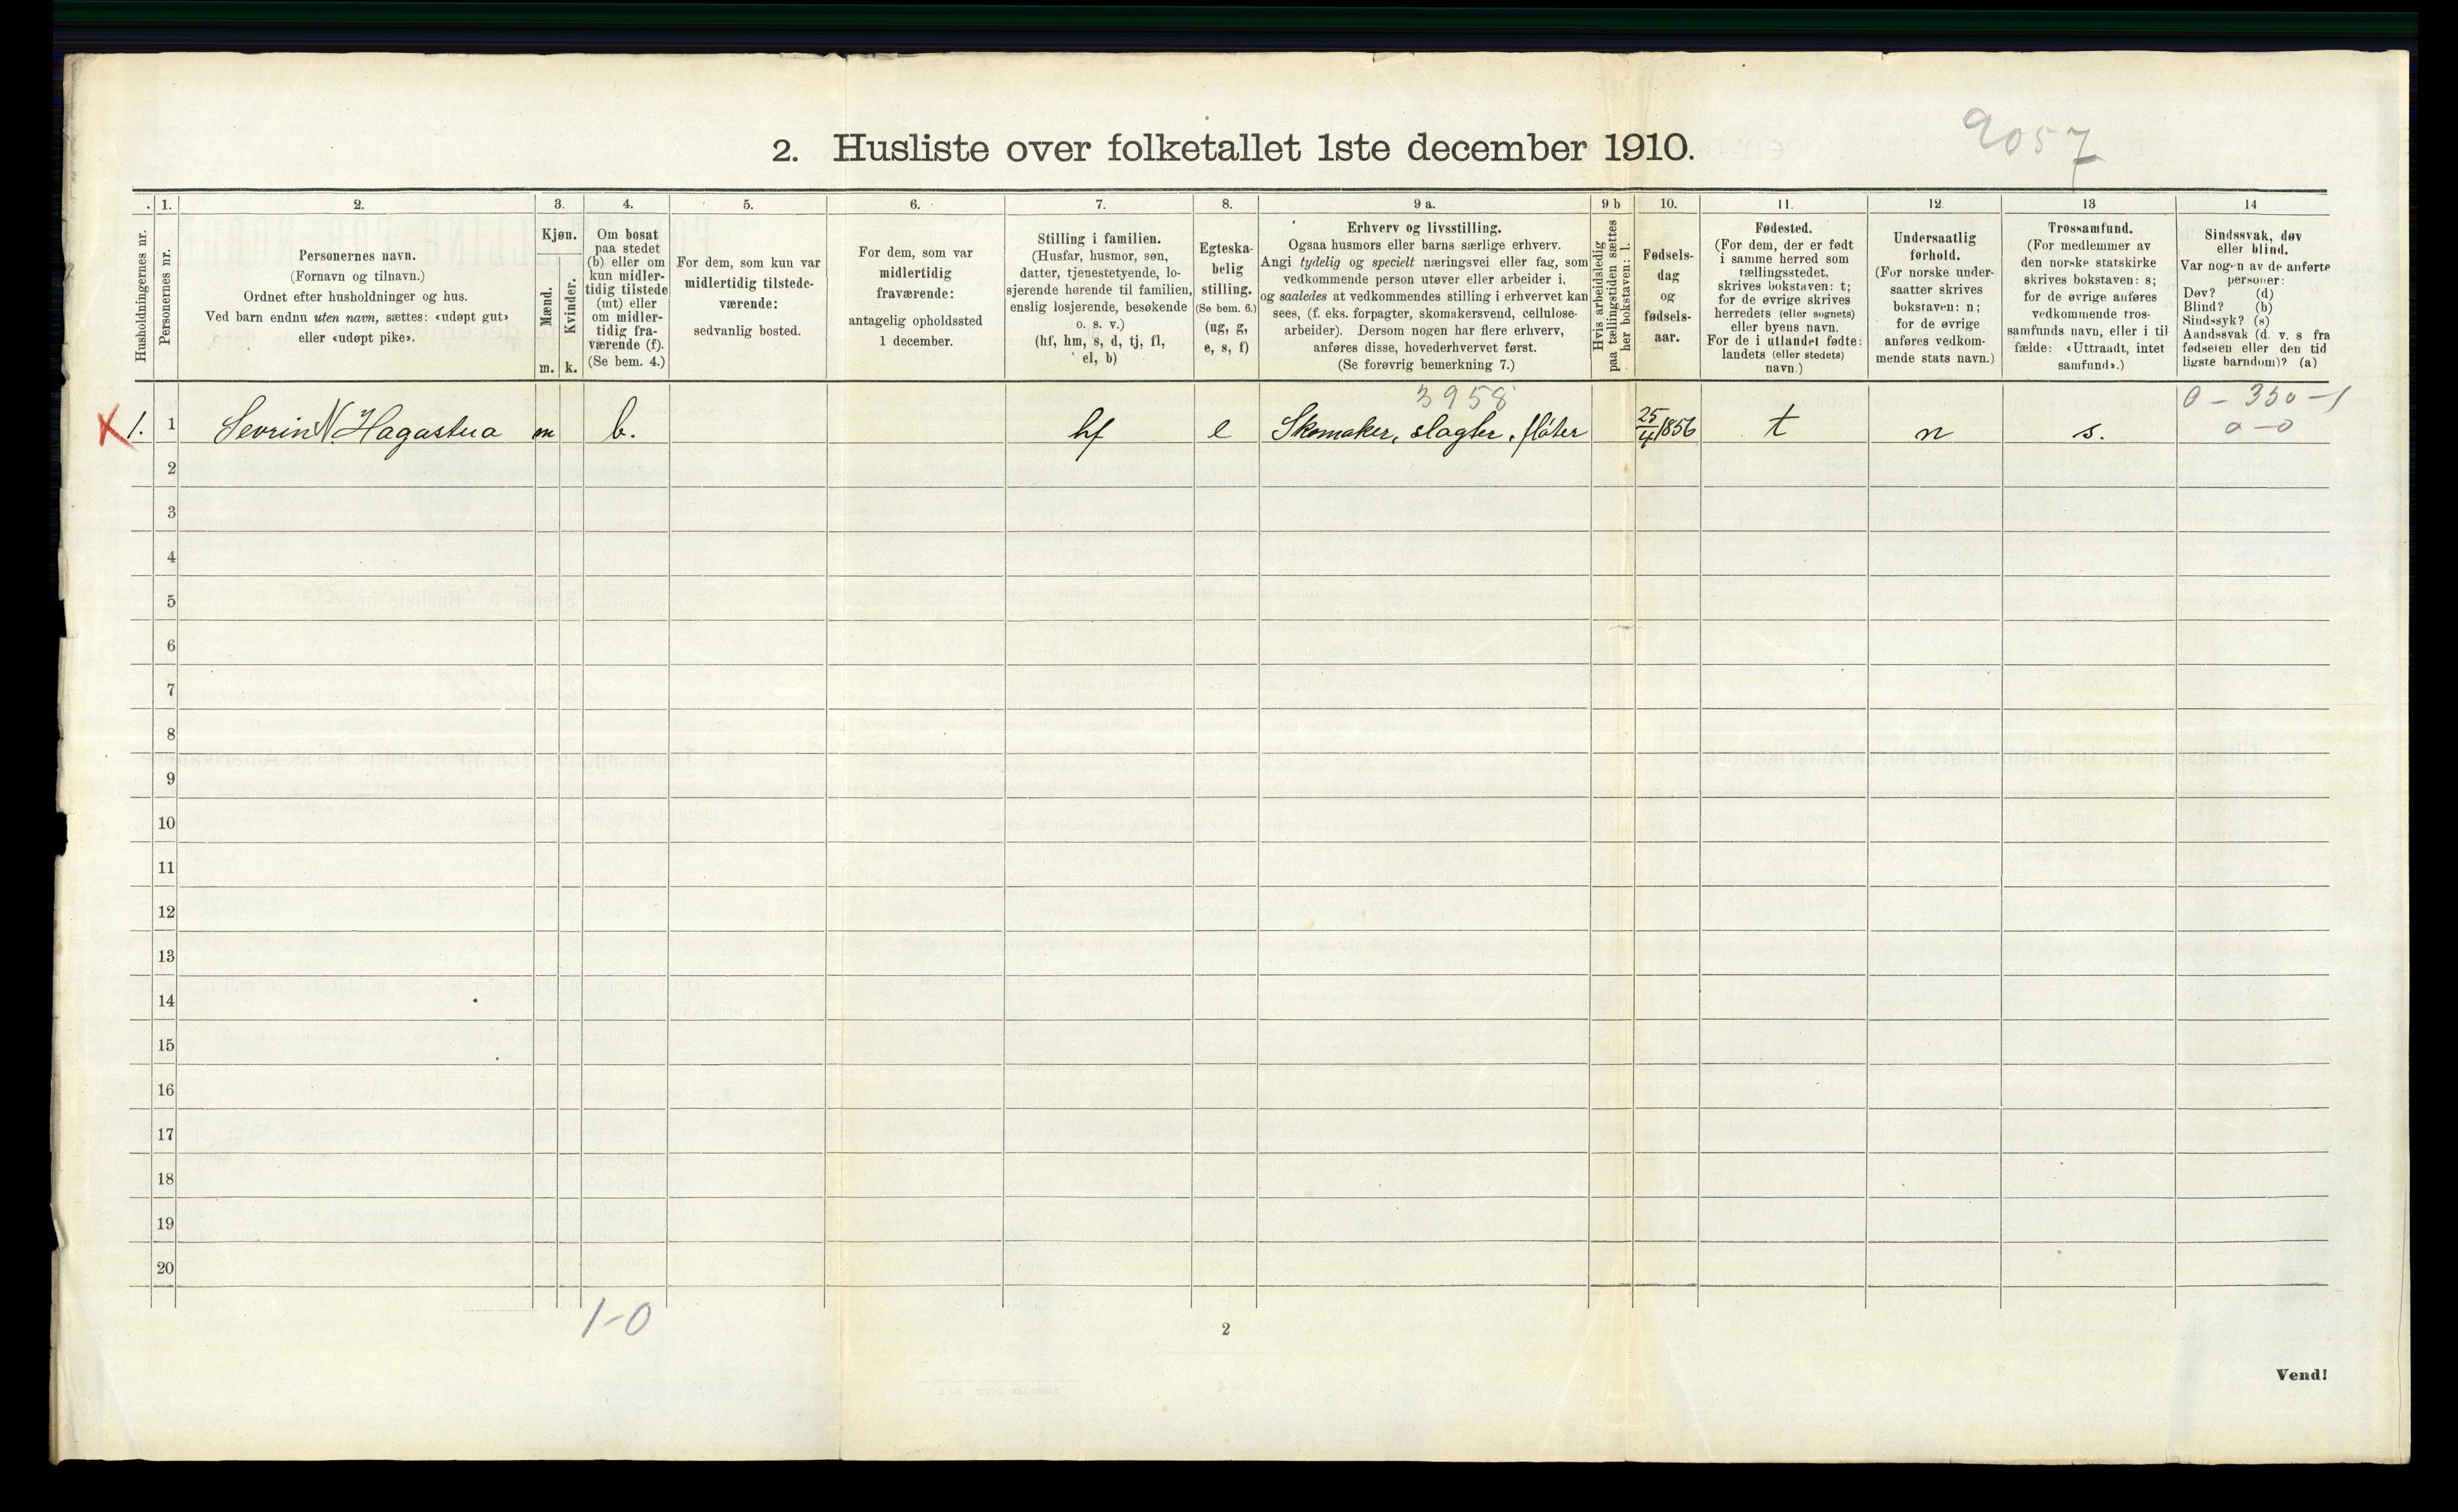 9057
2. Husliste over folketallet 1ste december 1910.
. 1. 2. 3. 4. 5. 6. 7. 8. 9 a. 9 b 10. 11. 12. 13 14
Husholdningernes nr.
Personernes nr.
Personernes navn.
(Fornavn og tilnavn.)
Ordnet efter husholdninger og hus.
Ved barn endnu uten navn, sættes: «udøpt gut»
eller «udøpt pike».
Kjøn.
Mænd.
Kvinder.
m. k.
Om bosat
paa stedet
(b) eller om
kun midler-
tidig tilstede
(mt) eller
om midler-
tidig fra-
værende (f).
(Se bem. 4.)
For dem, som kun var
midlertidig tilstede-
værende:
sedvanlig bosted.
For dem, som var
midlertidig
fraværende:
antagelig opholdssted
1 december.
Stilling i familien.
(Husfar, husmor, søn,
datter, tjenestetyende, lo-
sjerende hørende til familien,
enslig losjerende, besøkende
o. s. v.)
(hf, hm, s, d, tj, fl,
el, b)
Egteska-
belig
stilling.
(Se bem. 6.)
(ug, g,
e, s, f)
Erhverv og livsstilling.
Ogsaa husmors eller barns særlige erhverv.
Angi tydelig og specielt næringsvei eller fag, som
vedkommende person utøver eller arbeider i,
og saaledes at vedkommendes stilling i erhvervet kan
sees, (f. eks. forpagter, skomakersvend, cellulose-
arbeider). Dersom nogen har flere erhverv,
anføres disse, hovederhvervet først.
(Se forøvrig bemerkning 7.)
Hvis arbeidsledig
paa tællingstiden sættes
her bokstaven: l.
Fødsels-
dag
og
fødsels-
aar.
Fødested.
(For dem, der er født
i samme herred som
tællingsstedet,
skrives bokstaven: t;
for de øvrige skrives
herredets (eller sognets)
eller byens navn.
For de i utlandet fødte:
landets (eller stedets)
navn.)
Undersaatlig
forhold.
(For norske under-
saatter skrives
bokstaven: n;
for de øvrige
anføres vedkom-
mende stats navn.)
Trossamfund.
(For medlemmer av
den norske statskirke
skrives bokstaven: s;
for de øvrige anføres
vedkommende tros-
samfunds navn, eller i til-
fælde: «Uttraadt, intet
samfund».)
Sindssvak, døv
eller blind.
Var nogen av de anførte
personer:
Døv? (d)
Blind? (b)
Sindssyk? (s)
Aandssvak (d. v. s fra
fødselen eller den tid
ligste barndom)? (a)
3958
0 - 350 - 1
X 1. 1 Sevrin N. Hagastua m b. hf e Skomaker, slagter, fløter 25/4 1856 t n s. 0 - 0
2
3
4
5
6
7
8
9
10
11
12
13
14
15
16
17
18
19
20
1-0
2
Vend!